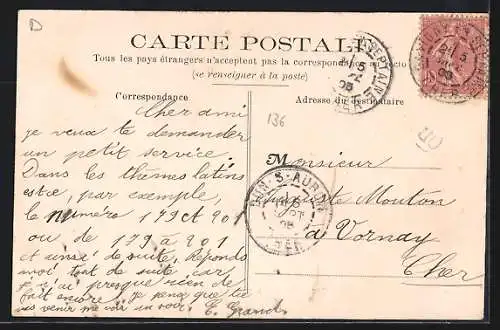 D
CARTE POSTALE
Tous les pays étrangers n'acceptent pas la correspondance au recto
(se renseigner à la poste)
Correspondance
Adresse du destinataire
136
Cher ami
je veux te demander
un petit service.
Dans les thèmes latins
est ce, par exemple,
le numéro 179 et 201
ou de 179 à 201
et ainsi de suite. Réponds
moi tout de suite car
je n'ai presque rien de
fait encore. je pense que tu
vas venir me voir un soir. E. Grand
Monsieur
Mouton
à Vornay
Cher
DUN-S-AURON
CHER